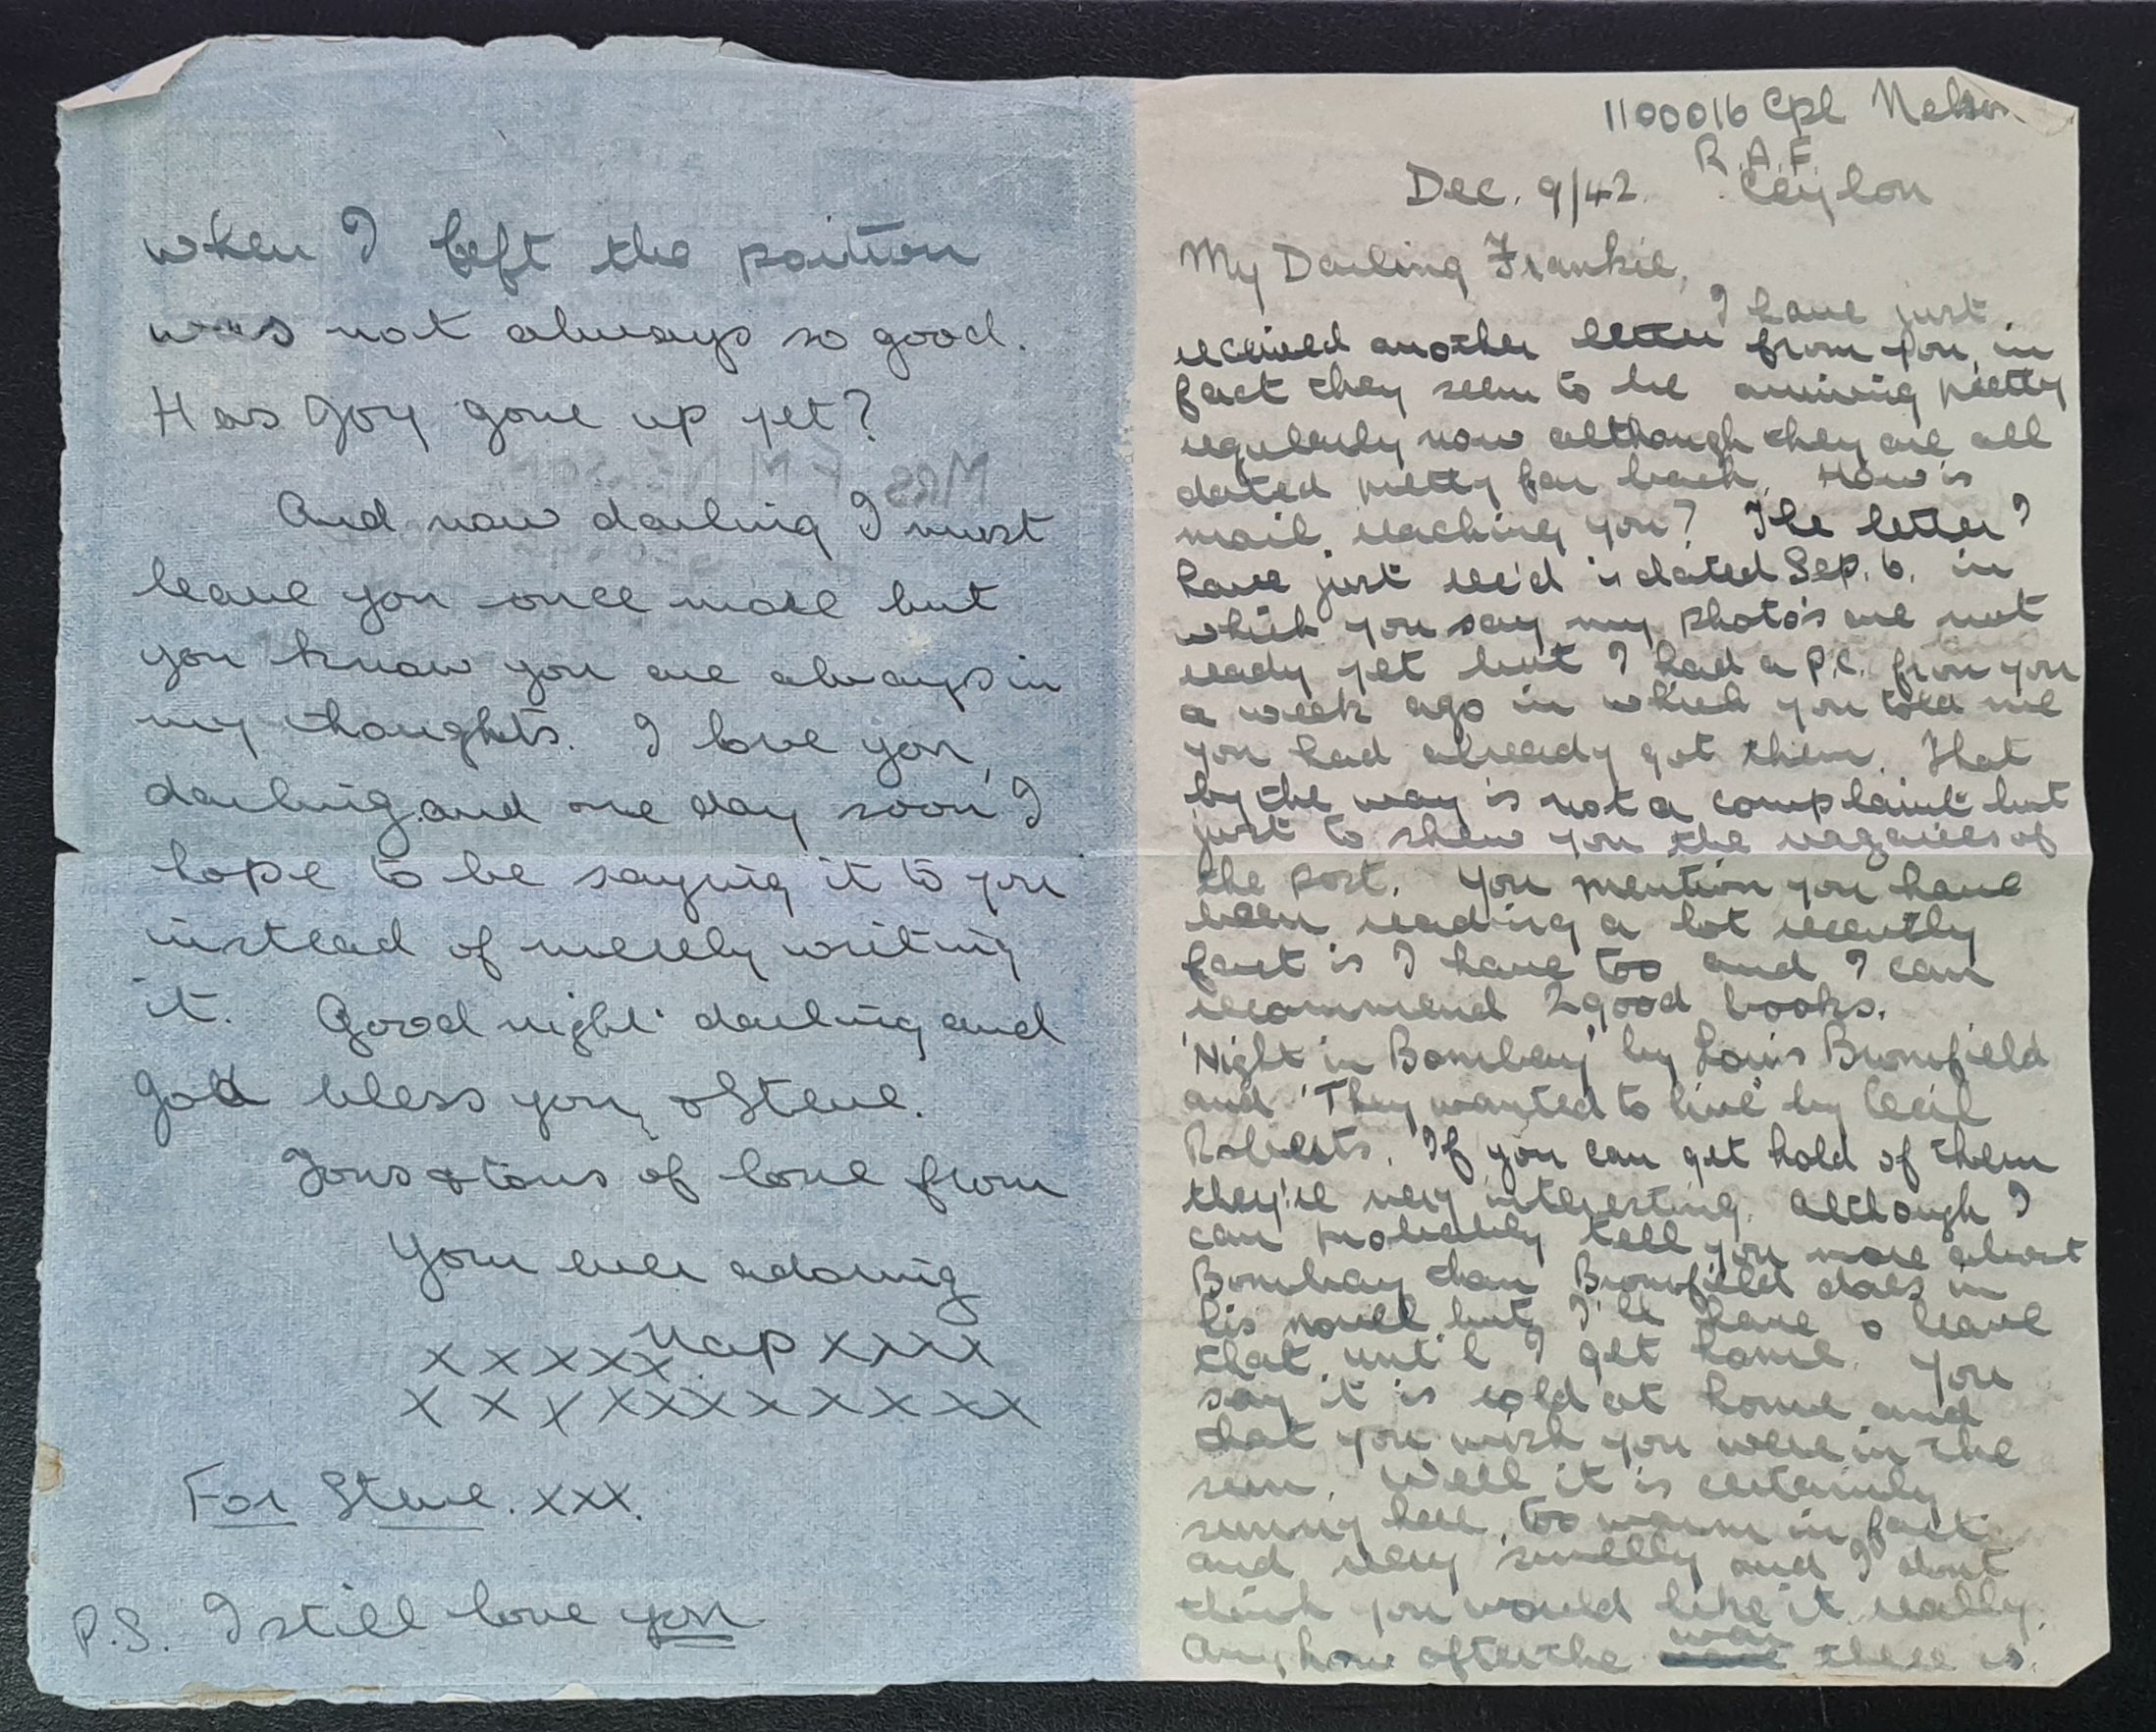 1100016 Cpl Nelson
R.A.F.
Dec. 9/42. Ceylon
My Darling Frankie,
I have just
received another letter from you, in
fact they seem to be arriving pretty
regularly now although they are all
dated pretty far back. How is
mail reaching you? The letter I
have just rec'd is dated Sep. 6. in
which you say my photo's are not
ready yet but I had a P.C. from you
a week ago in which you told me
you had already got them. That
by the way is not a complaint but
just to shew you the vagaries of
the post. You mention you have
been reading a lot recently
fact is I have too and I can
recommend 2 good books.
'Night in Bombay' by Louis Bromfield
and 'They wanted to live' by Cecil
Roberts. If you can get hold of them
they're very interesting. Although I
can probably tell you more about
Bombay than Bromfield does in
his novel but I'll have to leave
that until I get home. You
say it is cold at home and
that you wish you were in the
sun. Well it is certainly
sunny here, too warm in fact
and very smelly and I don't
think you would like it really.
Anyhow after the war there is
when I left the position
was not always so good.
Has Joy gone up yet?
And now darling I must
leave you once more but
you know you are always in
my thoughts. I love you,
darling and one day soon I
hope to be saying it to you
instead of merely writing
it. Good night darling and
God bless you, & Steve.
Tons & tons of love from
Your ever adoring
xxxxxx Nap xxxx
xxxxxxxxxxxx
For Steve. xxx.
P.S. I still love you
MRS F M NELSON